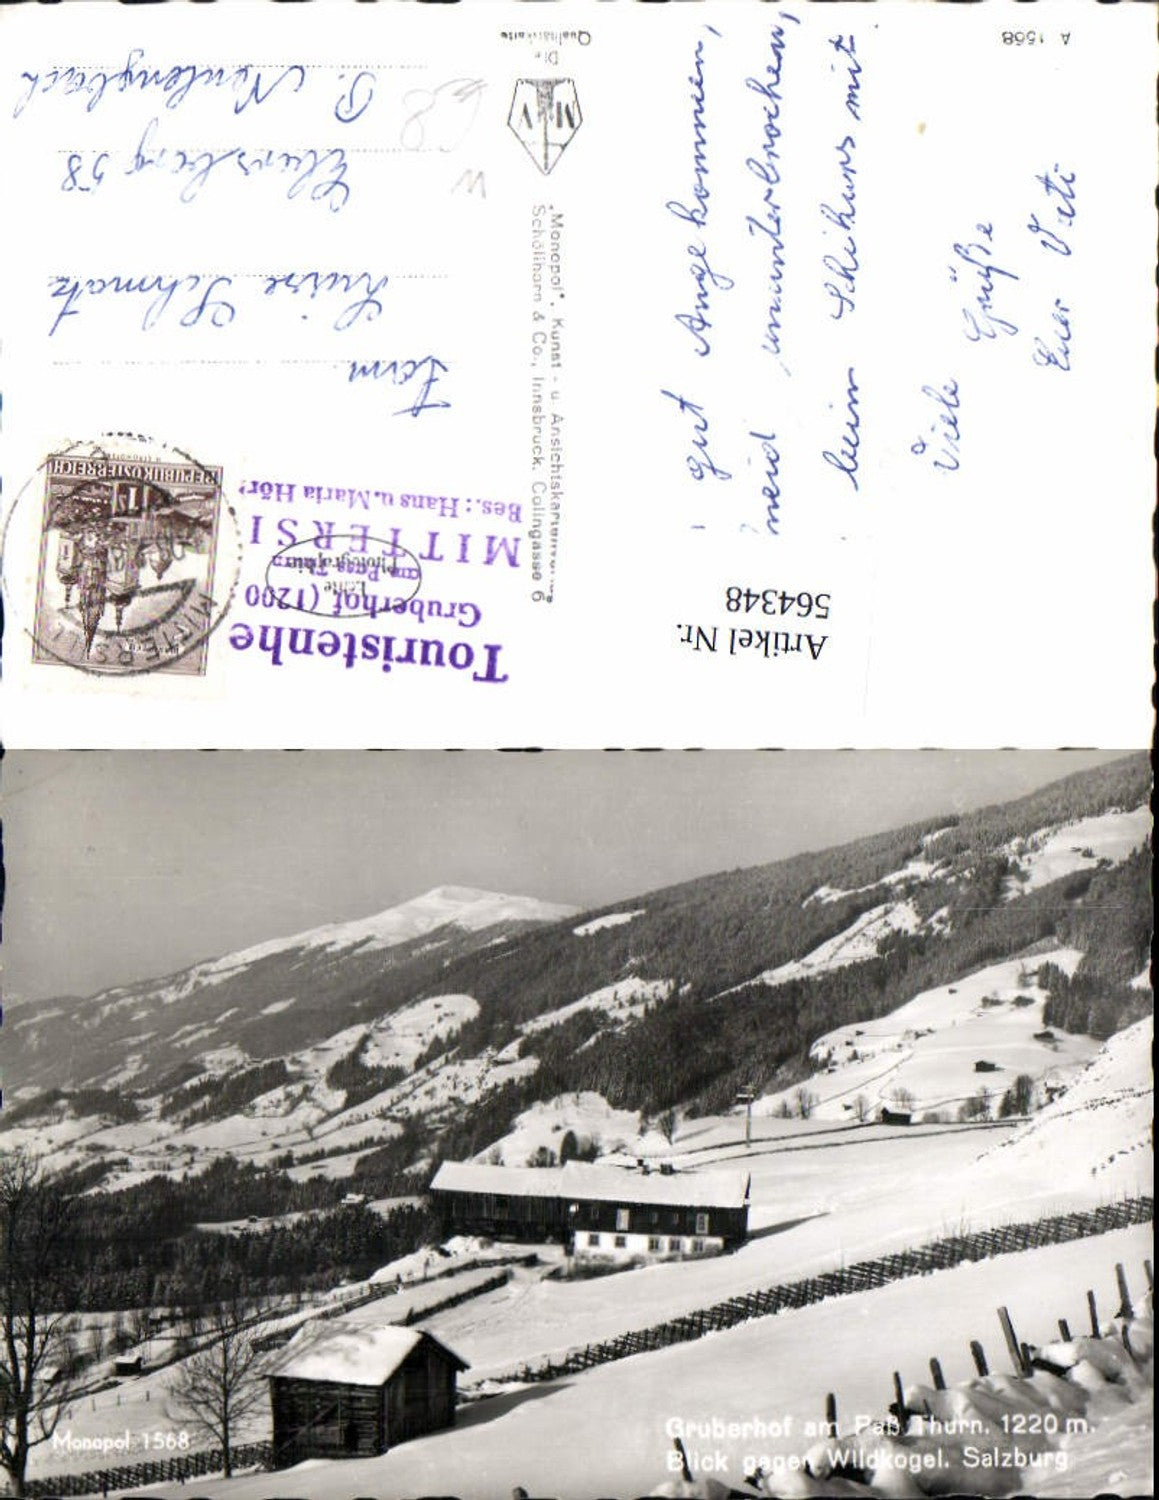 A 1568
Die
Qualitätskarte
M V
"Monopol", Kunst- u. Ansichtskarten
Schöllhorn & Co., Innsbruck, Colingasse 6
Echte
Photographie
gut Angekommen,
ununterbrochen,
beim Schikurs mit.
Viele Grüße
Euer Vati
Fam.
Luise Schmatz
58
P. Neulengbach
REPUBLIK ÖSTERREICH
1S
MITTERSILL
Touristenhe
Gruberhof (1200
am Pass Thurn
MITTERSI
Bes.: Hans u. Maria Hör
Artikel Nr.
564348
Monopol 1568
Gruberhof am Paß Thurn. 1220 m.
Blick gegen Wildkogel. Salzburg